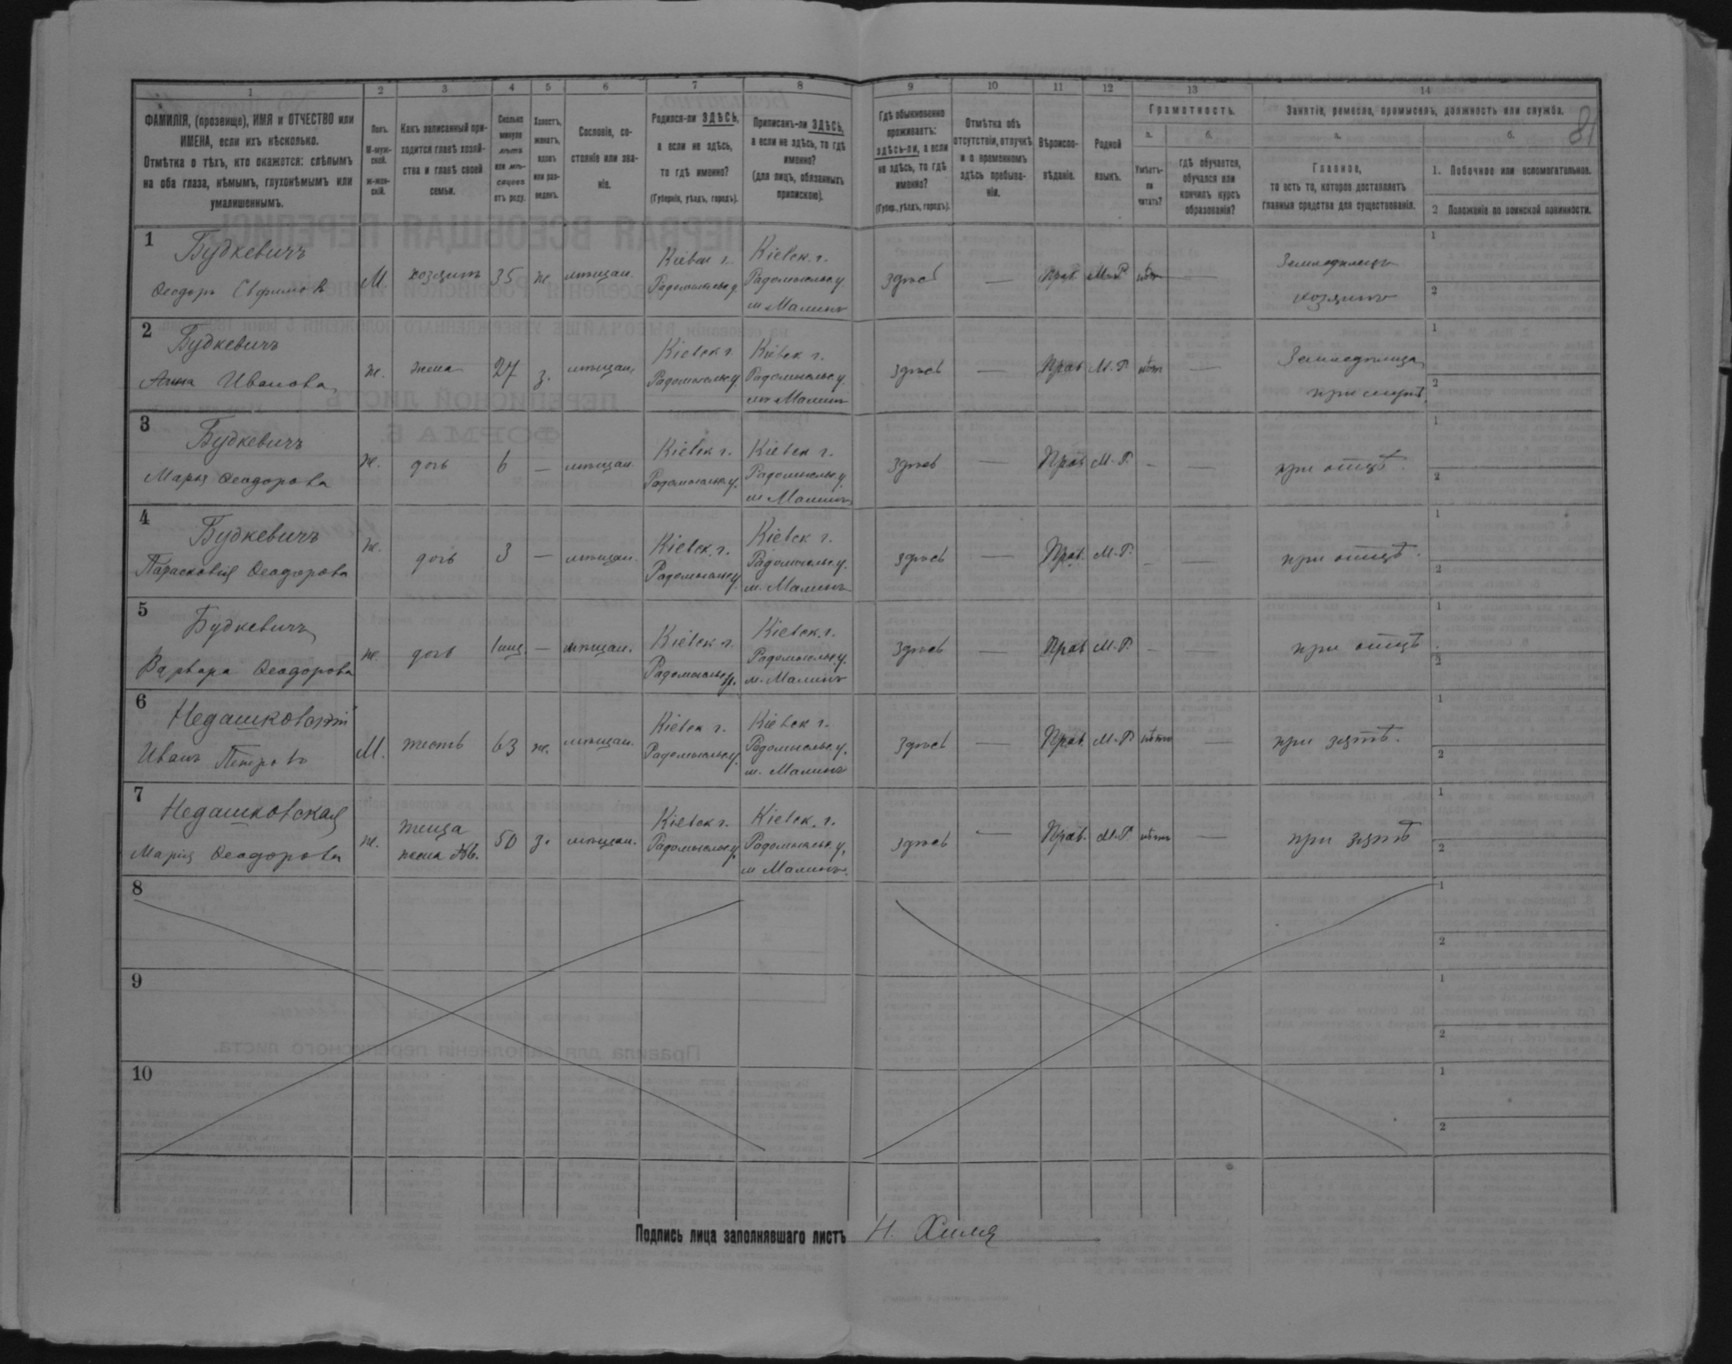 1 2 3 4 5 6 7 8 9 10 11 12 13 14
81
ФАМИЛІЯ, (прозвище), ИМЯ и ОТЧЕСТВО или
ИМЕНА, если ихъ нѣсколько.
Отмѣтка о тѣхъ, кто окажется: слѣпымъ
на оба глаза, нѣмымъ, глухонѣмымъ или
умалишеннымъ.
Полъ.
М-муж-
ской.
ж-жен-
скій.
Какъ записанный при-
ходится главѣ хозяй-
ства и главѣ своей
семьи.
Сколько
минуло
лѣтъ
или мѣ-
сяцевъ
отъ роду.
Холостъ,
женатъ,
вдовъ
или раз-
веденъ.
Сословіе, со-
стояніе или зва-
ніе.
Родился-ли ЗДѢСЬ,
а если не здѣсь,
то гдѣ именно?
(Губернія, уѣздъ, городъ).
Приписанъ-ли ЗДѢСЬ,
а если не здѣсь, то гдѣ
именно?
(для лицъ, обязанныхъ
припискою).
Гдѣ обыкновенно
проживаетъ:
здѣсь-ли, а если
не здѣсь, то гдѣ
именно?
(Губер., уѣздъ, городъ).
Отмѣтка объ
отсутствіи, отлучкѣ
и о временномъ
здѣсь пребыва-
ніи.
Вѣроиспо-
вѣданіе.
Родной
языкъ.
Грамотность.
а.
Умѣетъ-
ли
читать?
б.
гдѣ обучается,
обучался или
кончилъ курсъ
образованія?
Занятіе, ремесло, промыселъ, должность или служба.
а.
Главное,
то есть то, которое доставляетъ
главныя средства для существованія.
б.
1. Побочное или вспомогательное.
2 Положеніе по воинской повинности.
1 Будкевичъ
Феодоръ Евфимовъ М. хозяинъ 35 ж. мѣщан. Кіевск г. Радомысльск у. Кіевск. г. Радомысльск у. м Малинъ здѣсь — Прав М-Р нѣтъ — Земледѣлецъ хозяинъ 1 2
2 Будкевичъ
Анна Иванова ж. жена 27 з. мѣщан. Кіевск г. Радомысльск у. Кіевск г. Радомысльск у. м Малинъ здѣсь — Прав М.Р. нѣтъ — Земледѣлица при мужѣ. 1 2
3 Будкевичъ
Марія Феодорова ж. дочь 6 — мѣщан. Кіевск г. Радомысльск у. Кіевск г. Радомысльск у. м Малинъ здѣсь — Прав М.-Р. - — при отцѣ. 1 2
4 Будкевичъ
Парасковія Феодорова ж. дочь 3 — мѣщан. Кіевск. г. Радомысльск у. Кіевск г. Радомысльск у. м. Малинъ здѣсь — Прав. М.-Р. - — при отцѣ. 1 2
5 Будкевичъ
Варвара Феодорова ж. дочь — мѣщан. Кіевск г. Радомысльск у. Кіевск. г. Радомысльск у. м. Малинъ здѣсь — Прав М.-Р. - — при отцѣ 1 2
6 Недашковскій
Иванъ Петровъ М. тесть 63 ж. мѣщан. Кіевск г. Радомысльск у. Кіевск г. Радомысльск у. м. Малинъ здѣсь — Прав. М.-Р. нѣтъ — при зятѣ. 1 2
7 Недашковская
Марія Феодорова ж. теща жена №6. 50 з. мѣщан. Кіевск г. Радомысльск у. Кіевск. г. Радомысльск у. м Малинъ. здѣсь — Прав. М.-Р. нѣтъ — при зятѣ 1 2
8 1 2
9 1 2
10 1 2
Подпись лица заполнявшаго листъ Н. Химя